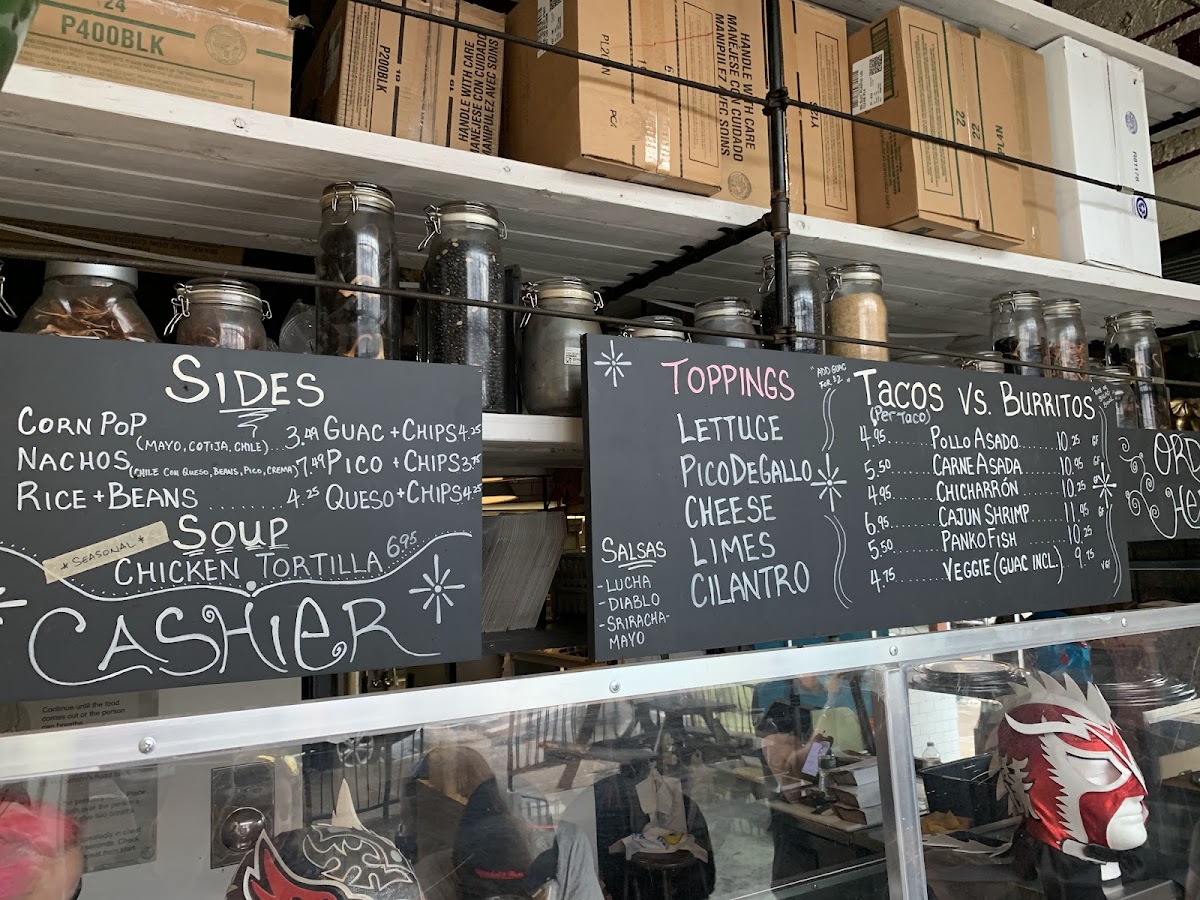 24
P400BLK
P200BLK
HANDLE WITH CARE
MANEJESE CON CUIDADO
MANIPULEZ AVEC SOINS
PL2N
HANDLE WITH CARE
MANEJESE CON CUIDADO
MANIPULEZ AVEC SOINS
22
22
PL4N
SIDES
CORN POP (MAYO, COTIJA, CHILE)... 3.49 GUAC + CHIPS 4.25
NACHOS (CHILE CON QUESO, BEANS, PICO, CREMA) 7.49 PICO + CHIPS 3.75
RICE + BEANS ........ 4.25 QUESO + CHIPS 4.25
* SEASONAL *
SOUP
CHICKEN TORTILLA 6.95
CASHIER
TOPPINGS
LETTUCE
PICO DE GALLO
CHEESE
LIMES
CILANTRO
SALSAS
- LUCHA
- DIABLO
- SRIRACHA-
MAYO
"ADD GUAC
FOR $2"
TACOS VS. BURRITOS
(PER TACO)
4.95 ....... POLLO ASADO ...... 10.25 GF
5.50 ....... CARNE ASADA ...... 10.95 GF
4.95 ....... CHICHARRÓN ...... 10.25 GF
6.95 ....... CAJUN SHRIMP ...... 11.95 GF
5.50 ....... PANKO FISH ...... 10.25
4.75 ....... VEGGIE (GUAC INCL.) ... 9.75 VGF
ORD
HE
Continue until the food
comes out or the person